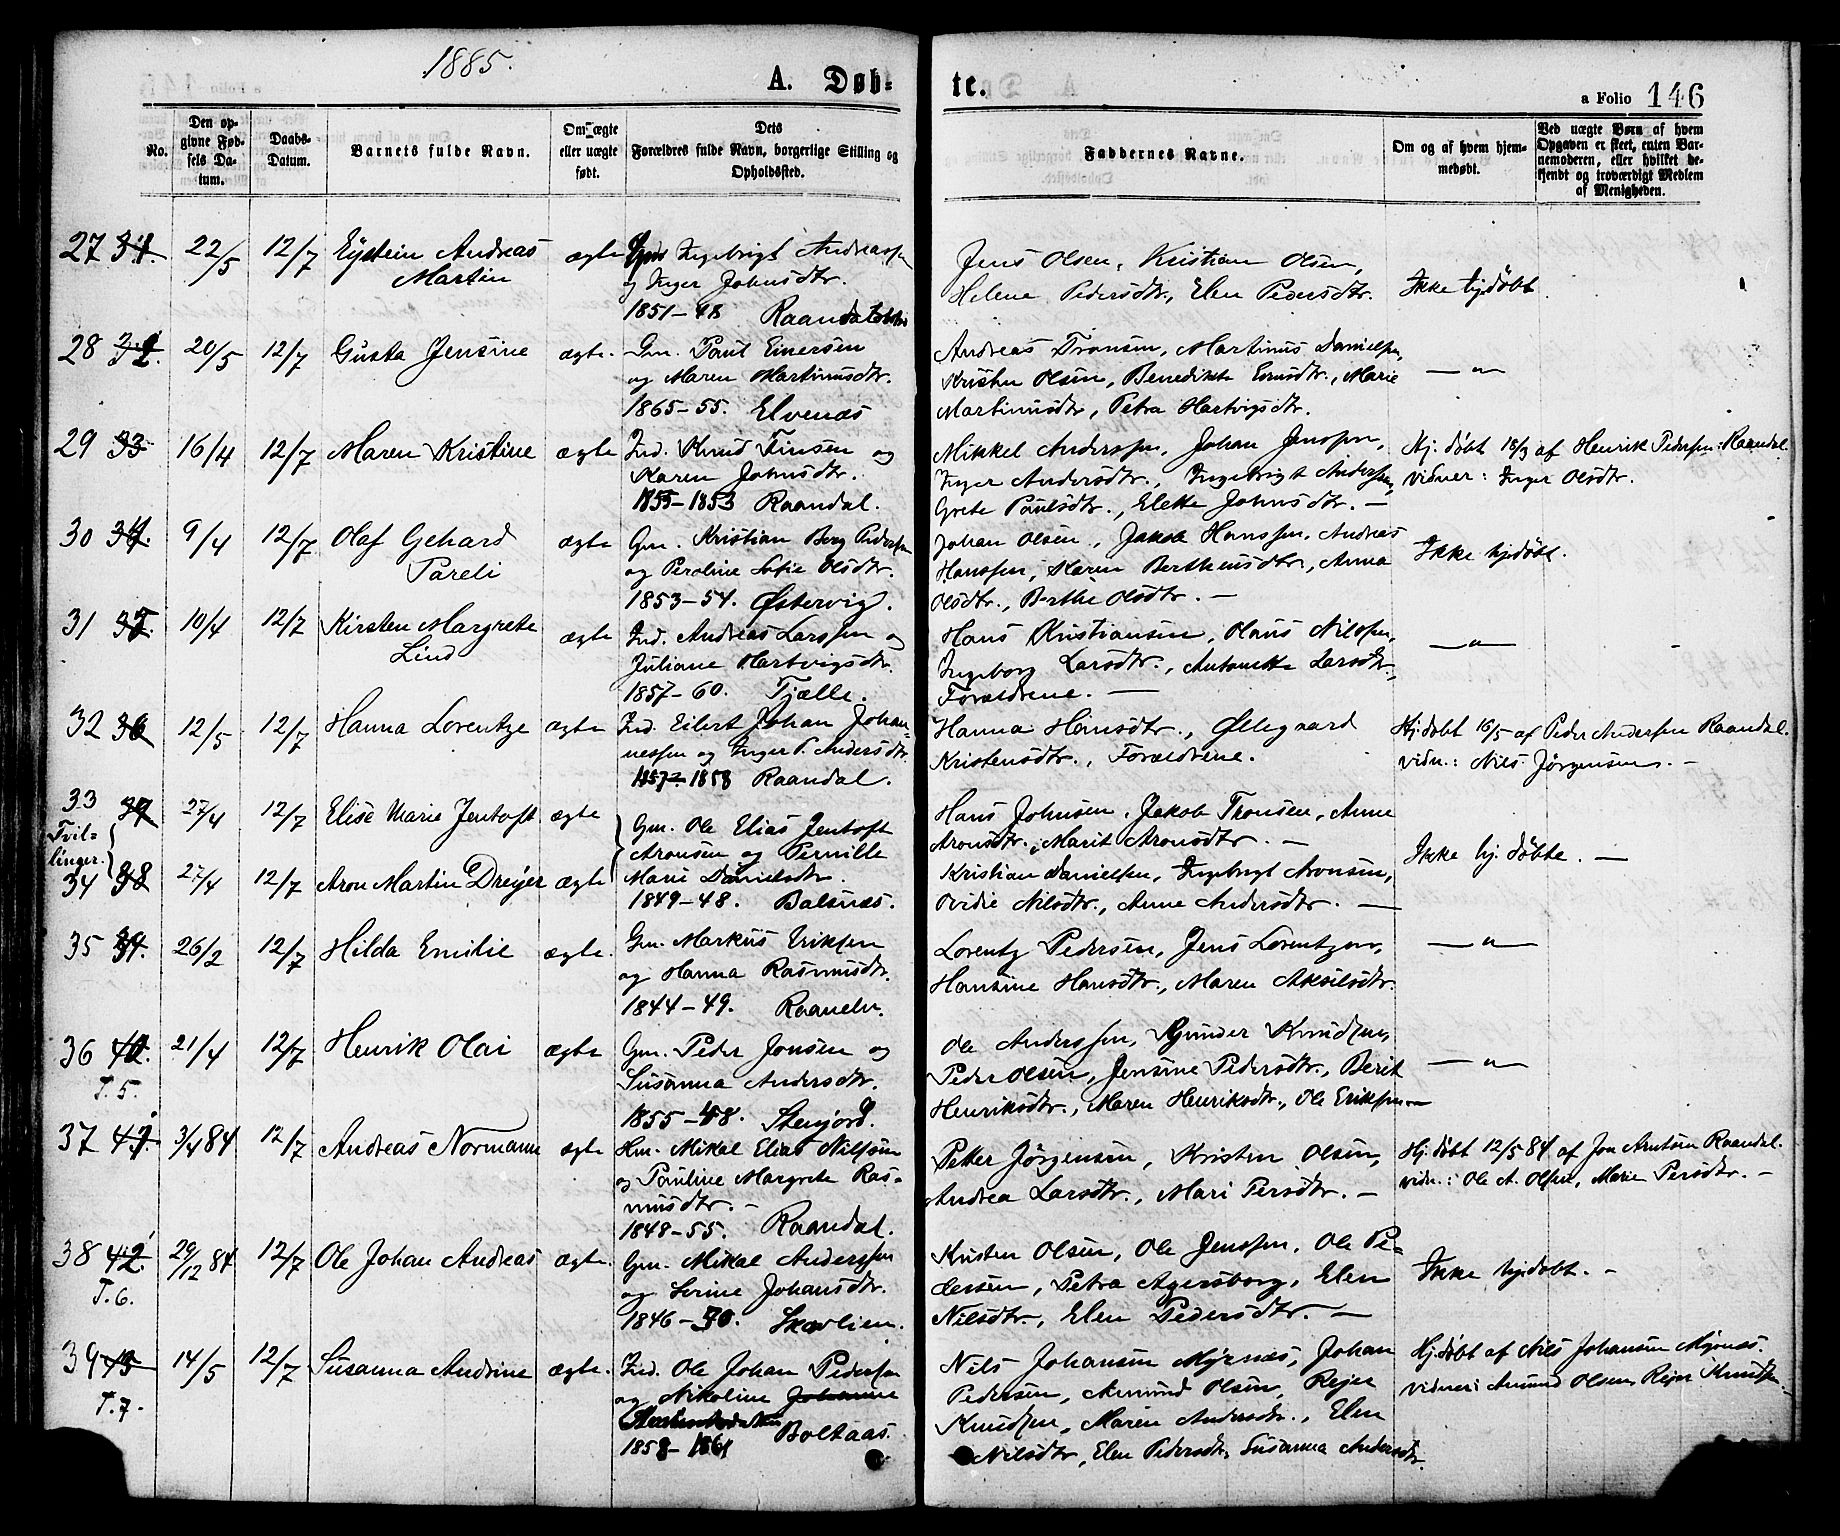 1885.
A. Døb-
te.
a Folio 146
No.
Den op-
givne Fød-
sels Da-
tum.
Daabs-
Datum.
Barnets fulde Navn.
Om ægte
eller uægte
født.
Dets
Forældres fulde Navn, borgerlige Stilling og
Opholdssted.
Faddernes Navne.
Om og af hvem hjem-
medøbt.
Ved uægte Børn af hvem
Opgaven er skeet, enten Bar-
nemoderen, eller hvilket be-
kjendt og troværdigt Medlem
af Menigheden.
27 31. 22/5 12/7 Eystein Andreas
Martin
ægte
Ingebrigt Andreassen
og Inger Johnsdtr.
1851-48
Jens Olsen, Kristian Olsen,
Helene Pedersdtr., Elen Pedersdtr.
Ikke hjdøbt
28 32. 20/5 12/7 Gusta Jensine ægte.
Gm. Paul Einersen
og Maren Martinusdtr.
1865-55. Elvenæs
Andreas Tronsen, Martinus Danielsen,
Kristen Olsen, Benedikte , Marie
Martinusdtr, Petra Hartvigsdtr.
— " —
29 33. 16/4 12/7 Maren Kristine ægte
Ind. Knud Finsen og
Karen Johnsdtr.
1855-1853 Raandal.
Mikkel Anderssen, Johan Jenssen,
Inger Andersdtr., Ingebrigt Anderssen,
Grete Paulsdtr., Elette Johnsdtr. —
Hj. døbt 18/3 af Henrik Pederssen Raandal
vidner: Inger Olsdtr.
30 34. 9/4 12/7 Olaf Gehard
Pareli
ægte
Gm. Kristian Berg Pederssen
og Peroline Sofie Olsdtr.
1853-54. Østervig.
Johan Olsen, Jakob Hanssen, Andreas
Hanssen, Maren Bertheusdtr., Anna
Olsdtr., Berthe Olsdtr. —
Ikke hjdøbt.
31 35. 10/4 12/7 Kirsten Margrete
Lind
ægte
Ind. Andreas Larssen og
Juliane Hartvigsdtr.
1857-60. Tjælle.
Hans Kristiansen, Hans Nilssen,
Ingeborg Larsdtr., Antonette Larsdtr.,
Forældrene. —
— " —
32 36 12/5 12/7 Hanna Lorentze ægte
Ind. Eilert Johan Johan-
nessen og Inger P. Andersdtr.
1857- 1858 Raandal.
Hanna Hansdtr., Øllegaard
Kristensdtr., Forældrene.
Hj.døbt 16/5 af Peder Anderssen Raandal.
vidn.: Nils Jørgensen. —
33 37 27/4 12/7 Elise Marie Jentoft ægte
Tvil-
linger.
Gm. Ole Elias Jentoft
Aronsen og Pernille
Marie Danielsdtr.
1849-48. Balsnæs.
Hans Johnsen, Jakob Tronsen, Anne
Aronsdtr., Marit Aronsdtr. —
Ikke hj. døbte. —
34 38 27/4 12/7 Aron Martin Dreyer ægte
Kristian Danielsen, Ingebrigt Aronsen,
Ovidie Nilsdtr., Anne Andersdtr. —
35 39. 26/2 12/7 Hilda Emilie ægte.
Gm. Markus Eriksen
og Hanna Rasmusdtr.
1844-49.
Lorentz Pedersen, Jens Lorentzen,
Hansine Hansdtr., Maren Akselsdtr.
— " —
36 40. 21/4 12/7 Henrik Olai ægte
T. 5.
Gm. Peder Jonsen og
Susanna Andersdtr.
1855-48. Stenjord.
Ole Anderssen, Gunder Knudsen,
Peder Olsen, Jensine Pedersdtr., Berit
Henriksdtr., Maren Henriksdtr., Ole Eriksen —
— " —
37 41. 3/4 84 12/7 Andreas Normann ægte
Hm. Mikal Elias Nilssen
og Pauline Margrete Ras-
musdtr. —
1848-55. Raandal.
Petter Jørgensen, Kristen Olsen,
Andrea Larsdtr., Mari Persdtr. —
Hj. døbt 12/5 84 af Jon Arntsen Raandal.
vidn.: Ole A. Olsen, Marie Persdtr. —
38 42. 29/12 84 12/7 Ole Johan Andreas ægte.
T. 6.
Gm. Mikal Anderssen
og Serine Johansdtr.
1846-50. Skavlien.
Kristen Olsen, Ole Jenssen, Ole Pe-
dersen, Petra Agersborg, Elen
Nilsdtr., Elen Pedersdtr. —
Ikke hjdøbt. —
39 43 14/5 12/7 Susanna Andrine ægte.
T. 7.
Ind. Ole Johan Pedersen
og Nikoline Johanne
1858- 1861 Boltaas
Nils Johansen Myrnæs, Johan
Pedersen, Amund Olsen, Rejer
Knudsen, Maren Andersdtr., Elen
Nilsdtr, Elen Pedersdtr., Susanna Andersdtr.
Hj.døbt af Nils Johansen Myrnæs.
vidner: Amund Olsen, Rejer Knudsen